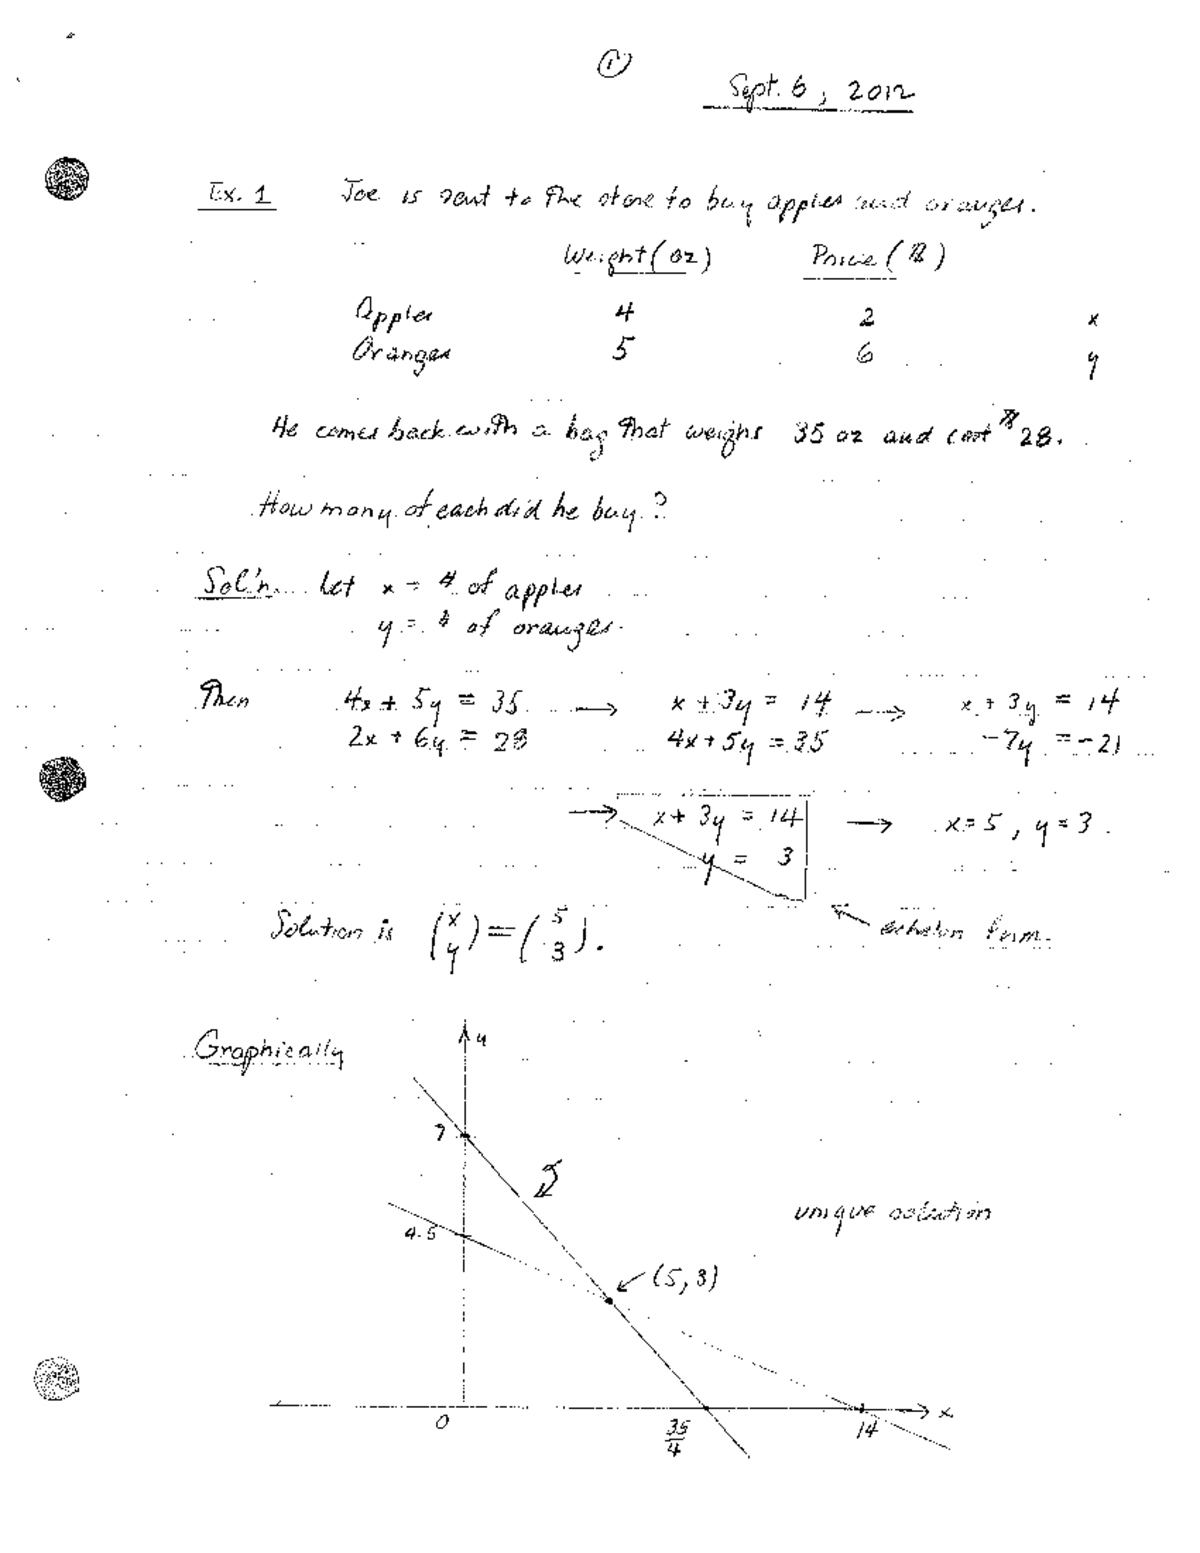 1
Sept. 6, 2012
Ex. 1 Joe is sent to the store to buy apples and oranges.
Weight (oz) Price ($)
Apples 4 2 x
Oranges 5 6 y
He comes back with a bag that weighs 35 oz and cost $28.
How many of each did he buy?
Sol'n. Let x = # of apples
y = # of oranges.
Then 4x + 5y = 35 → x + 3y = 14 → x + 3y = 14
2x + 6y = 28 4x + 5y = 35 -7y = -21
→ x + 3y = 14 → x = 5, y = 3.
y = 3
Solution is (x y) = (5 3). echelon form.
Graphically y
7
unique solution
4.5
(5, 3)
x
0 35/4 14